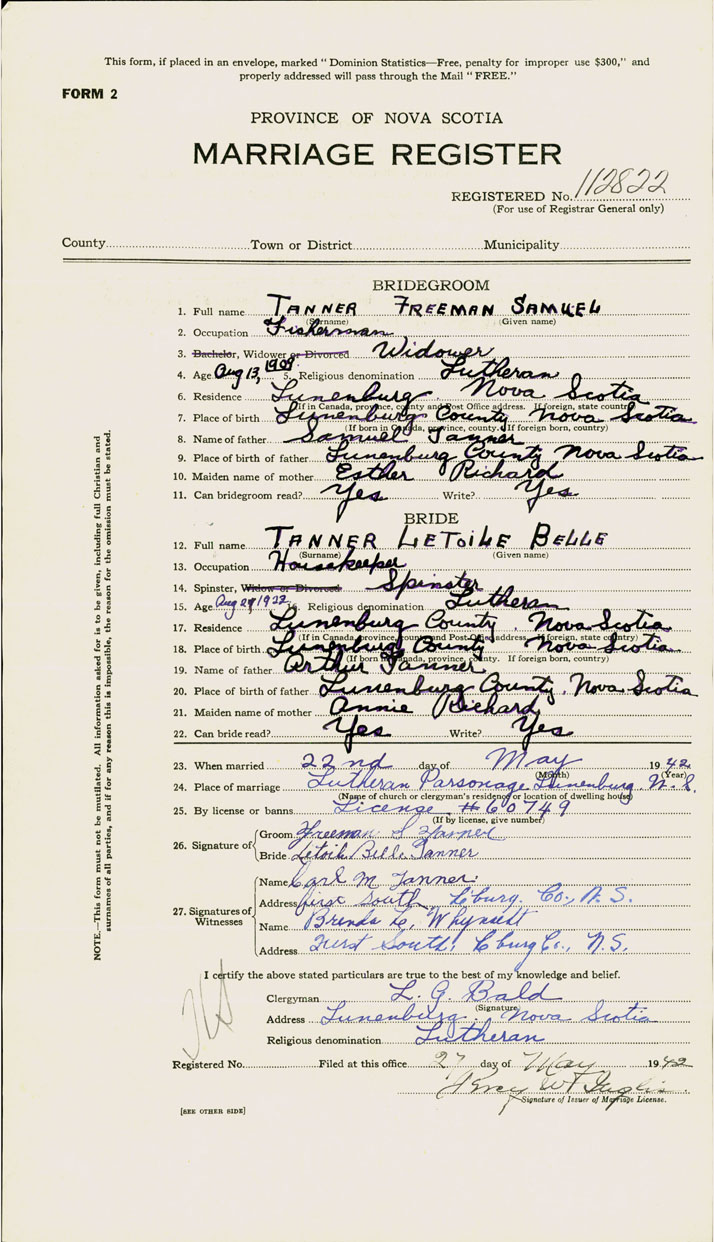 This form, if placed in an envelope, marked "Dominion Statistics—Free, penalty for improper use $300," and
properly addressed will pass through the Mail "FREE."
FORM 2
PROVINCE OF NOVA SCOTIA
MARRIAGE REGISTER
REGISTERED No. 112822
(For use of Registrar General only)
County Town or District Municipality
BRIDEGROOM
1. Full name TANNER FREEMAN SAMUEL
(Surname) (Given name)
2. Occupation Fisherman
3. Bachelor, Widower or Divorced Widower
4. Age Aug 13, 1909. 5. Religious denomination Lutheran
6. Residence Lunenburg Nova Scotia
(If in Canada, province, county and Post Office address. If foreign, state country)
7. Place of birth Lunenburg County Nova Scotia
(If born in Canada, province, county. If foreign born, country)
8. Name of father Samuel Tanner
9. Place of birth of father Lunenburg County Nova Scotia
10. Maiden name of mother Esther Richard
11. Can bridegroom read? Yes Write? Yes
BRIDE
12. Full name TANNER LETOILE BELLE
(Surname) (Given name)
13. Occupation Housekeeper
14. Spinster, Widow or Divorced Spinster
15. Age Aug 29, 1922 16. Religious denomination Lutheran
17. Residence Lunenburg County, Nova Scotia
(If in Canada, province, county and Post Office address. If foreign, state country)
18. Place of birth Lunenburg County Nova Scotia
(If born in Canada, province, county. If foreign born, country)
19. Name of father Arthur Tanner
20. Place of birth of father Lunenburg County, Nova Scotia
21. Maiden name of mother Annie Richard
22. Can bride read? Yes Write? Yes
23. When married 22nd day of May 1942
(Month) (Year)
24. Place of marriage Lutheran Parsonage Lunenburg, N.S.
(Name of church or clergyman's residence or location of dwelling house)
25. By license or banns License #60749
(If by license, give number)
26. Signature of
Groom Freeman S Tanner
Bride Letoile Belle Tanner
27. Signatures of Witnesses
Name Carl M Tanner
Address first South L'burg. Co., N.S.
Name Brenda L. Whynacht
Address First South, L'burg Co., N.S.
I certify the above stated particulars are true to the best of my knowledge and belief.
Clergyman L. G. Bald
(Signature)
Address Lunenburg, Nova Scotia
Religious denomination Lutheran
Registered No. Filed at this office 27 day of May 1942
Signature of Issuer of Marriage License.
[SEE OTHER SIDE]
NOTE.—This form must not be mutilated. All information asked for is to be given, including full Christian and
surnames of all parties, and if for any reason this is impossible, the reason for the omission must be stated.